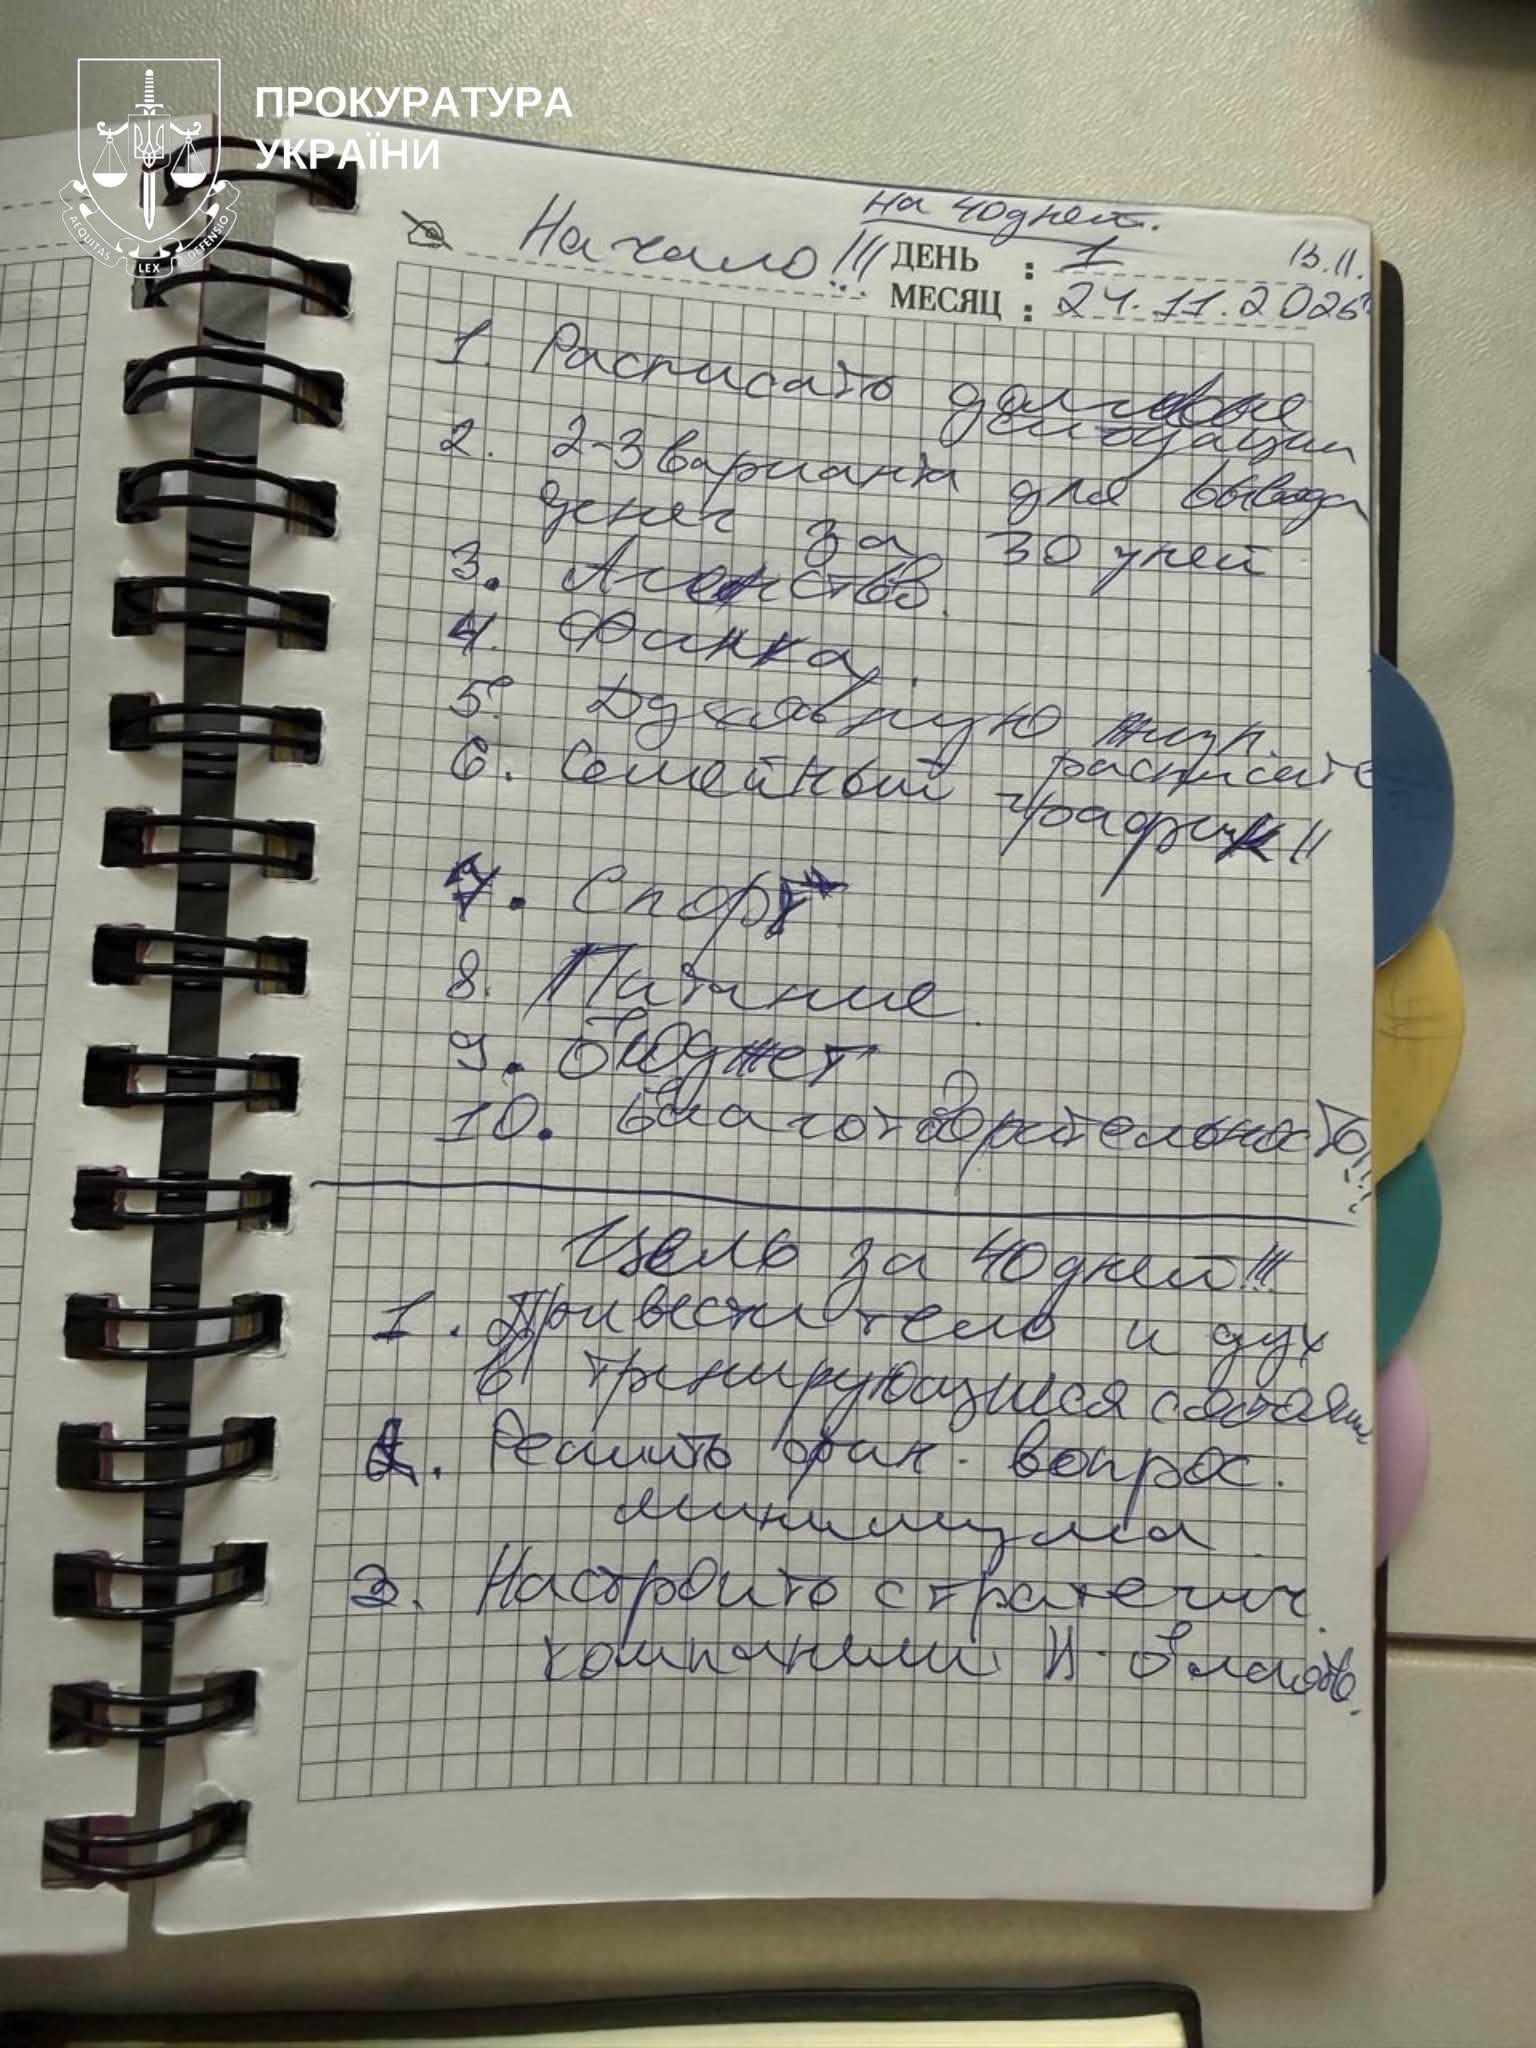 ПРОКУРАТУРА
УКРАЇНИ
AEQUITAS LEX DEFENSIO
на 40 дней.
Начало!!! ДЕНЬ : 1 13.11.
МЕСЯЦ : 24.11.2025
1. Расписать долговые
2. 2-3 варианта для вывода
денег за 30 дней
3. Агенство.
4. Финка.
5. Духовную жизн.
расписать
6. Семейный
график!!
7. Спорт
8. Питание.
9. Бюджет
10. Благотворительность!!!
Цель за 40 дней!!!
1. Привести тело и дух
в
2. Решить фин. вопрос.
минимума.
3. Настроить стратегич.
компании